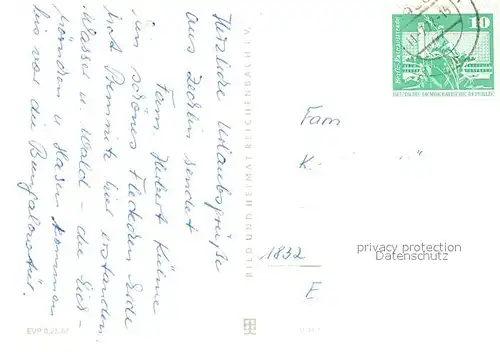 Herzliche Urlaubsgrüße
aus Zechlin sendet
Fam. Herbert Kühne
Ein schönes Fleckchen Erde
hat Premnitz hier erstanden.
Wasser u. Wald – die Eich-
hörnchen u. Hasen kommen
bis vor die Bungalowtür.
EVP 0,20 M
BILD UND HEIMAT REICHENBACH I. V.
10
DEUTSCHE DEMOKRATISCHE REPUBLIK
Fam
K
1832
privacy protection
Datenschutz
E